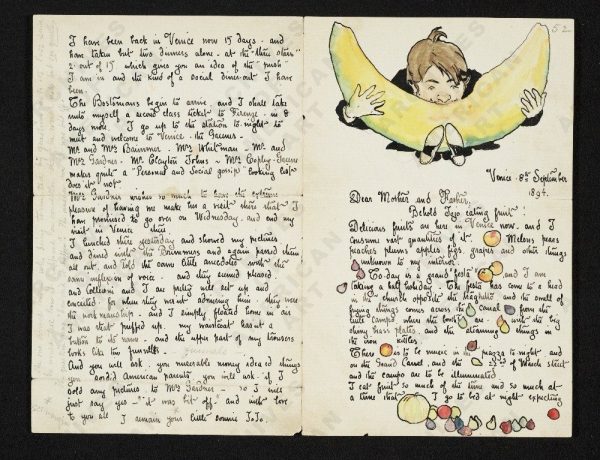 I have been back in Venice now 15 days - and
have taken but two dinners alone - at the "three stars"
2 out of 15 which gives you an idea of the "push"
I am in and the kind of a social diner-out I have
been.
The Bostonians begin to arrive and I shall take
unto myself a second class ticket to Firenze - in 8
days more. I go up to the station to night to
meet and welcome to Venice - the
Mr and Mrs Mrs Whitman - Mr and
Mrs Gardner - Mr Clayton Johns - Mrs Copley Greene
makes quite a "Personal and Social gossip" looking list
does it not
Mrs Gardner wishes so much to have the extreme
pleasure of having me make her a visit there that I
have promised to go over on Wednesday - and end my
visit in Venice there
I lunched there yesterday and showed my pictures
and dined with the and again passed them
all out, and told the same little anecdotes with the
same inflexion of voice - and they seemed pleased -
and I are pretty well set up and
conceited - for when they went admiring him - they were
the workmanship - and I simply floated home in our
I was that puffed up. my waistcoat hasn't a
button to its name - and the upper part of my trousers
looks like two funnels.
And you will ask - you miserable money idea'd things
you sordid American parents, you will ask if I
sold any pictures to Mrs Gardner so I will
just say yes - "it was bit off" - and with love
to you all I remain your little sonnie JoJo.
52
Venice - 8th September
1894.
Dear Mother and Father,
Behold Jojo eating fruit!
Delicious fruits are here in Venice now - and I
consume vast quantities of it. Melons pears
peaches plums apples figs grapes and other things
unknown to my interior.
To-day is a grand festa and I am
taking a half holiday. The festa has come to a head
in the church opposite the traghetto and the smell of
frying things comes across the canal from the
little campo where the booths are - with the big
shiny brass plates, and the steaming things in
the iron kettles.
There is to be music in the piazza to night and
on the Grand Canal, and the of Church street
and the campo are to be illuminated
I eat fruit so much of the time and so much at
a time that I go to bed at night expecting